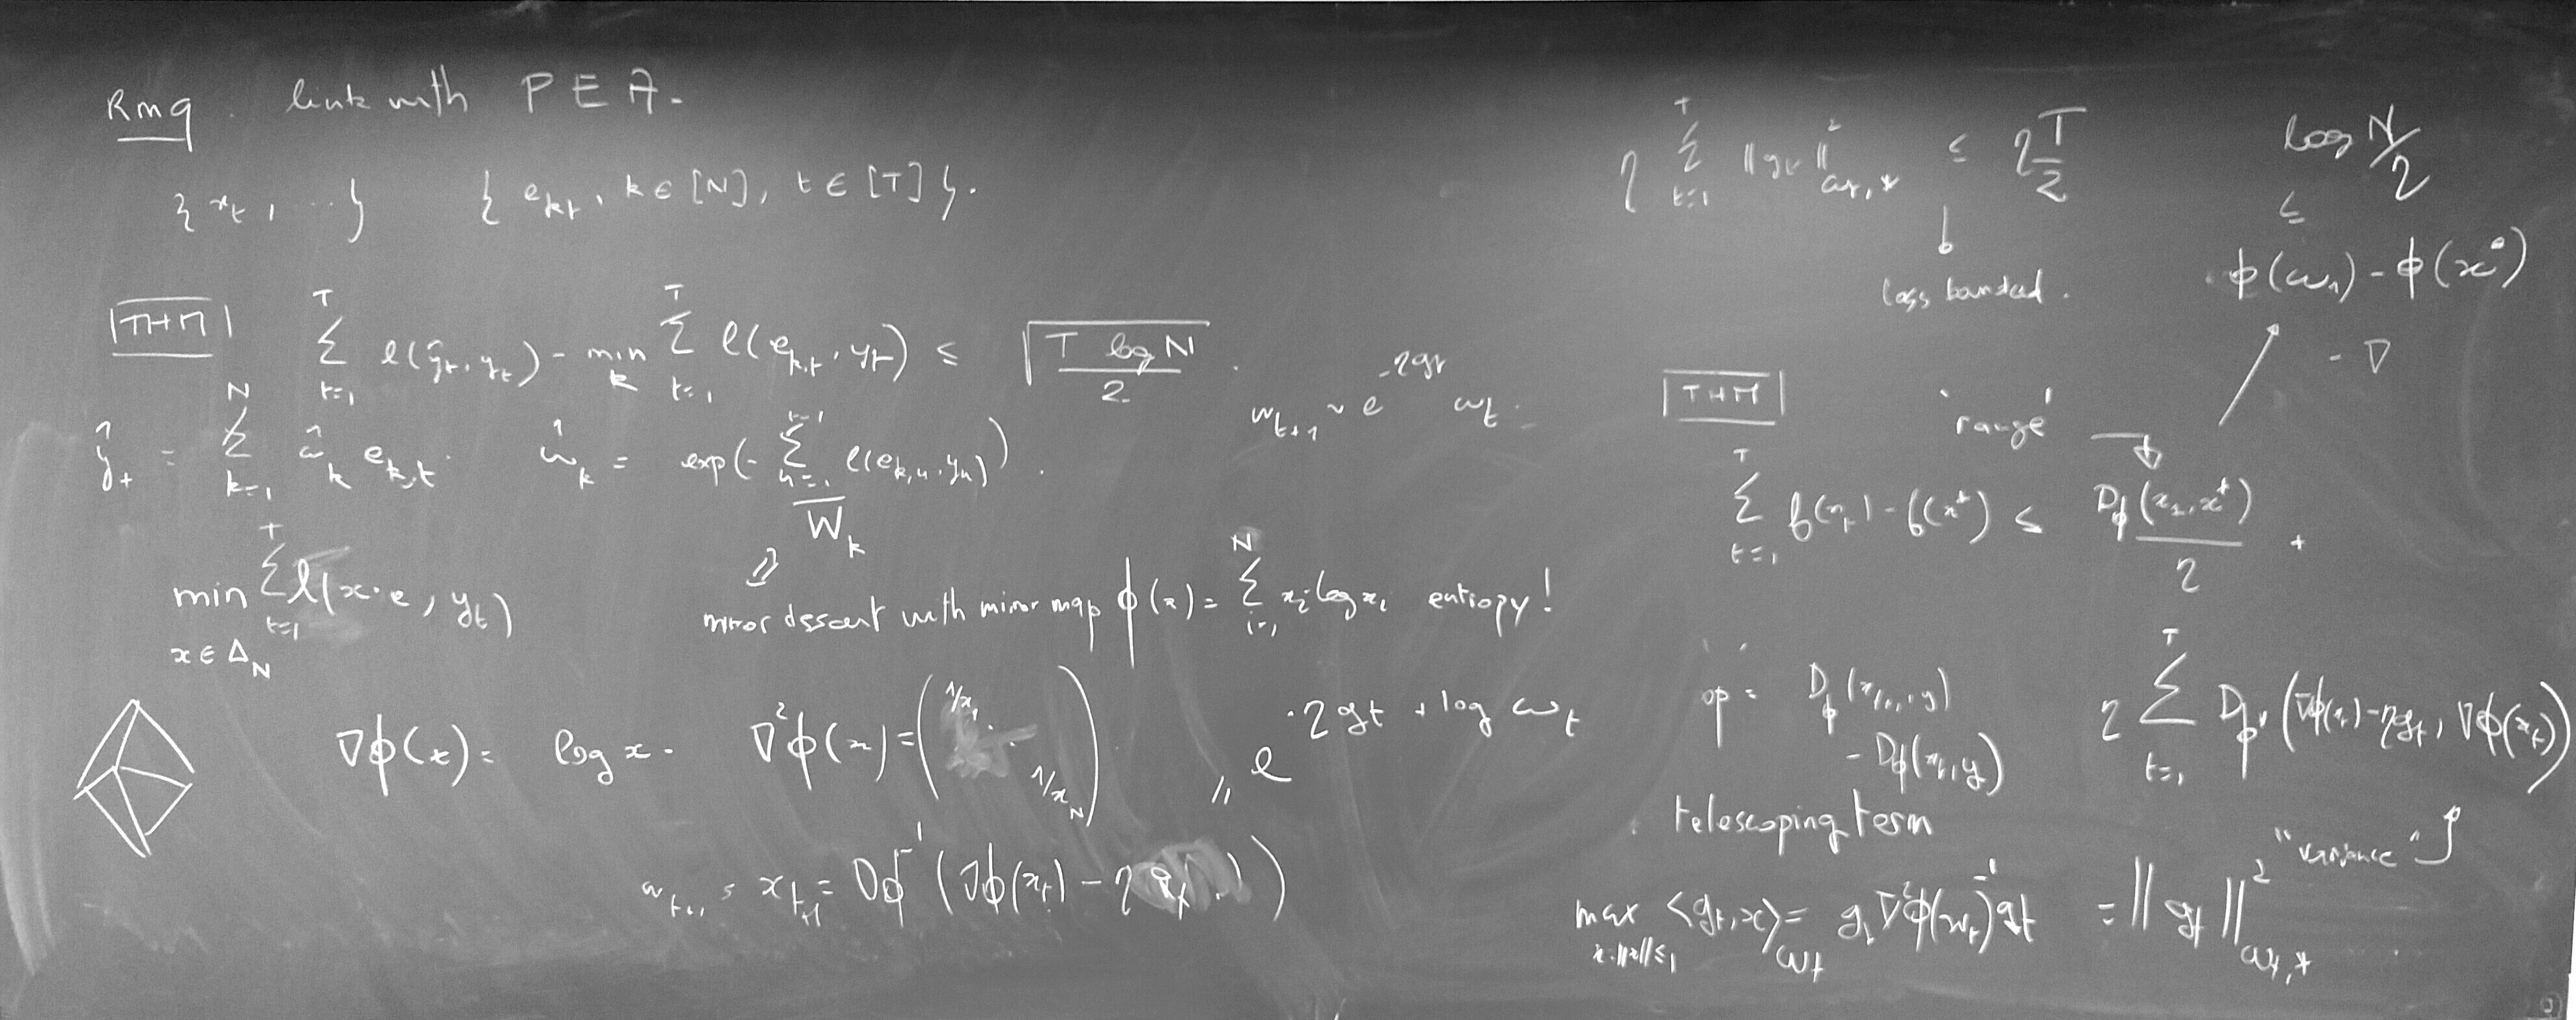 Rmq. link with PEA.
{x_t, ...} {e_{k,t}, k ∈ [N], t ∈ [T]}.
THM ∑_{t=1}^{T} ℓ(ŷ_t, y_t) - min_k ∑_{t=1}^{T} ℓ(e_{k,t}, y_t) ≤ √(T log N / 2).
ŷ_t = ∑_{k=1}^{N} ŵ_k e_{k,t}. ŵ_k = exp(- ∑_{u=1}^{t-1} ℓ(e_{k,u}, y_u)) / W_k.
w_{t+1} ~ e^{-ηg_t} w_t.
min_{x ∈ Δ_N} ∑_{t=1}^{T} ℓ(x·e, y_t)
⇓
mirror descent with mirror map ϕ(x) = ∑_{i=1}^{N} x_i log x_i entropy!
∇ϕ(x) = log x. ∇²ϕ(x) = (1/x_1 ... 1/x_N)
= e^{-ηg_t + log w_t}
w_{t+1} = x_{t+1} = ∇ϕ^{-1}(∇ϕ(x_t) - η g_t)
η ∑_{t=1}^{T} ‖g_t‖²_{w_t,*} ≤ η T/2
loss bounded.
log N/η
≤
ϕ(w_1) - ϕ(x*)
- ∇
THM 'range'
∑_{t=1}^{T} f(x_t) - f(x*) ≤ D_ϕ(x_1, x*) / η +
η ∑_{t=1}^{T} D_{ϕ*}(∇ϕ(x_t) - ηg_t, ∇ϕ(x_t))
op = D_ϕ(x_{t+1}, y)
- D_ϕ(x_t, y)
. telescoping term
"variance"
max_{x:‖x‖≤1} <g_t, x>_{w_t} = g_t ∇²ϕ(w_t)^{-1} g_t = ‖g_t‖²_{w_t,*}